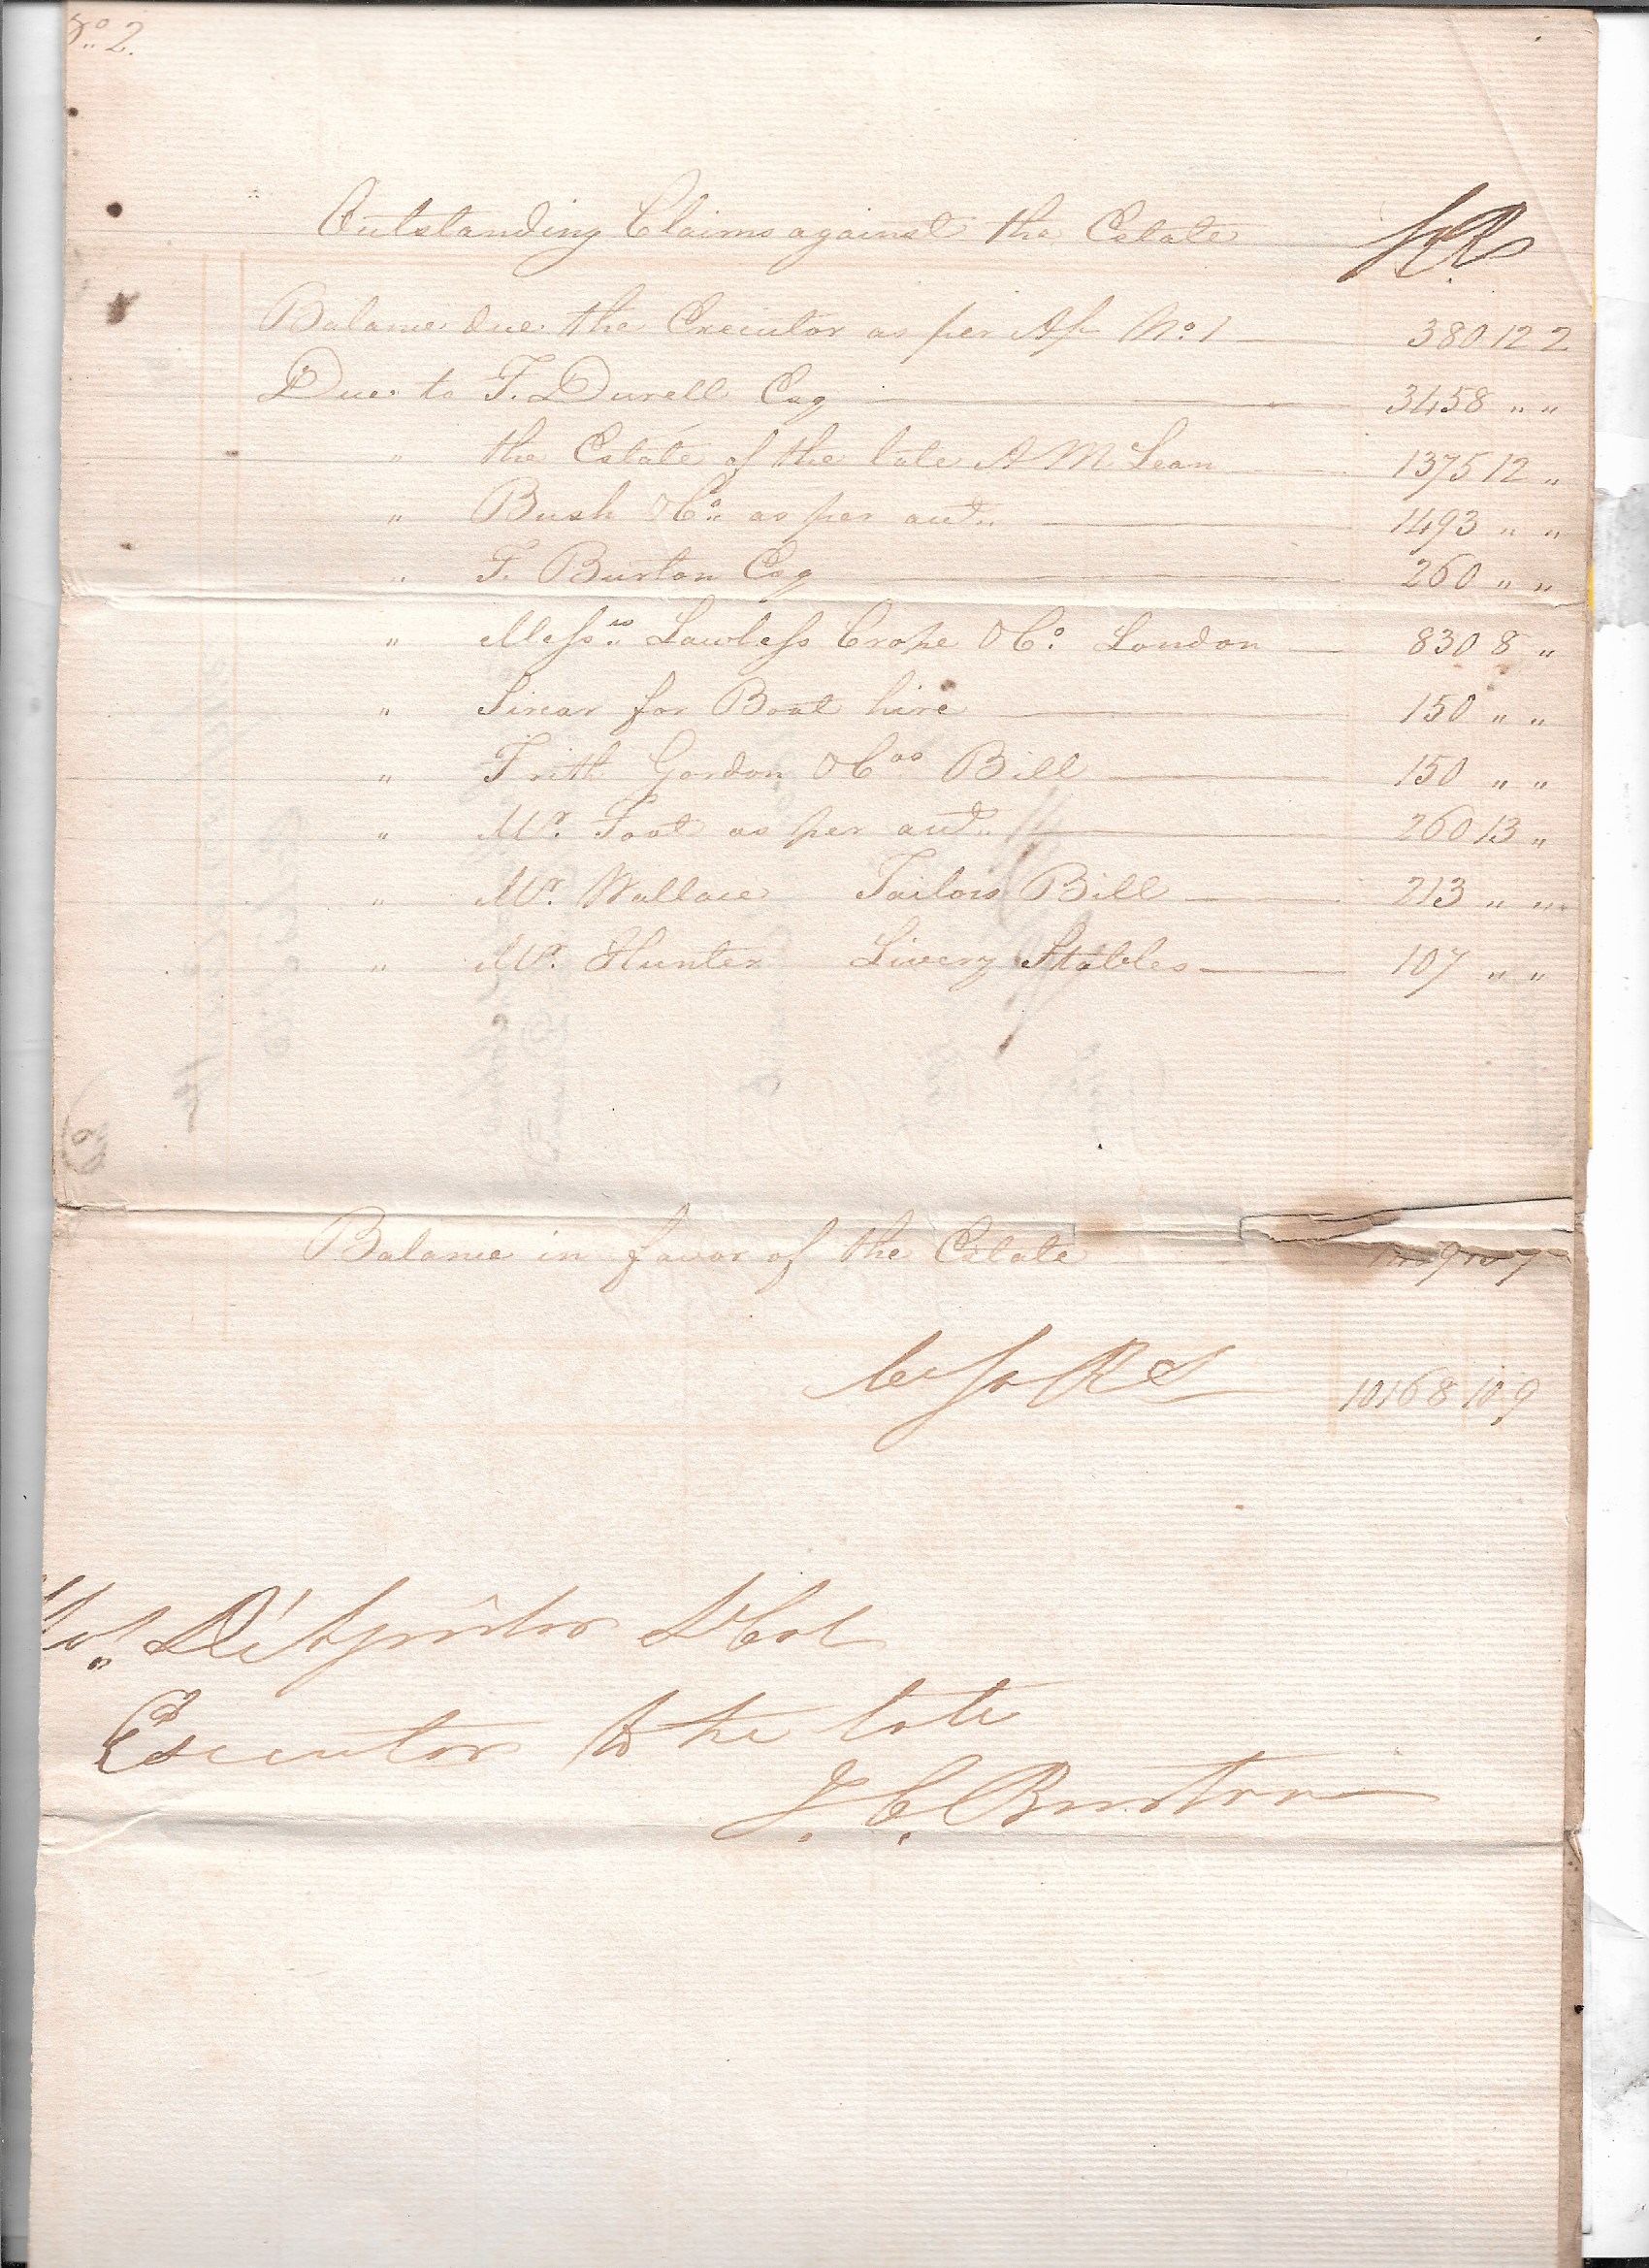 No. 2.
Outstanding Claims against the Estate
Balance due the Executor as per Ap No. 1 380 12 2
Due to T. Durell Esq 3458 " "
" the Estate of the late A McLean 1375 12 "
" Bush & Co. as per
 1493 " "
" F. Burton Esq 260 " "
" Messrs. Lawless & Co. London 830 8 "
" Sircar for Boat hire 150 " "
" Frith Gordon & Cos Bill 150 " "
" Mr. Foot as per 260 13 "
" Mr. Wallace Tailors Bill 213 " "
" Mr. Hunter Livery Stables 107 " "
Balance in favor of the Estate
10168 10 9
Executor to the late
J. C. Burton